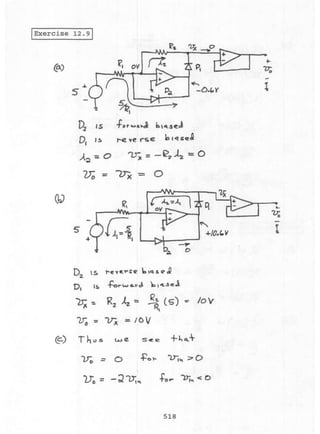 Exercise 12.9
(a)
R₂ vₓ 0
R₁ 0V i₂ D₁ + v₀ -
5 + - 5/R₁ D₂ -0.6V
D₂ is forward biased
D₁ is reverse biased
i₂ = 0 vₓ = -R₂ i₂ = 0
v₀ = vₓ = 0
(b)
vₓ
R₁ 0V i₂ = i₁ D₁ + v₀ -
5 - + i₁ = 5/R₁ D₂ 0 +10.6V
D₂ is reverse biased
D₁ is forward biased
vₓ = R₂ i₂ = R₂/R₁ (5) = 10V
v₀ = vₓ = 10V
(c) Thus we see that
v₀ = 0 for vᵢₙ > 0
v₀ = -2vᵢₙ for vᵢₙ < 0
518